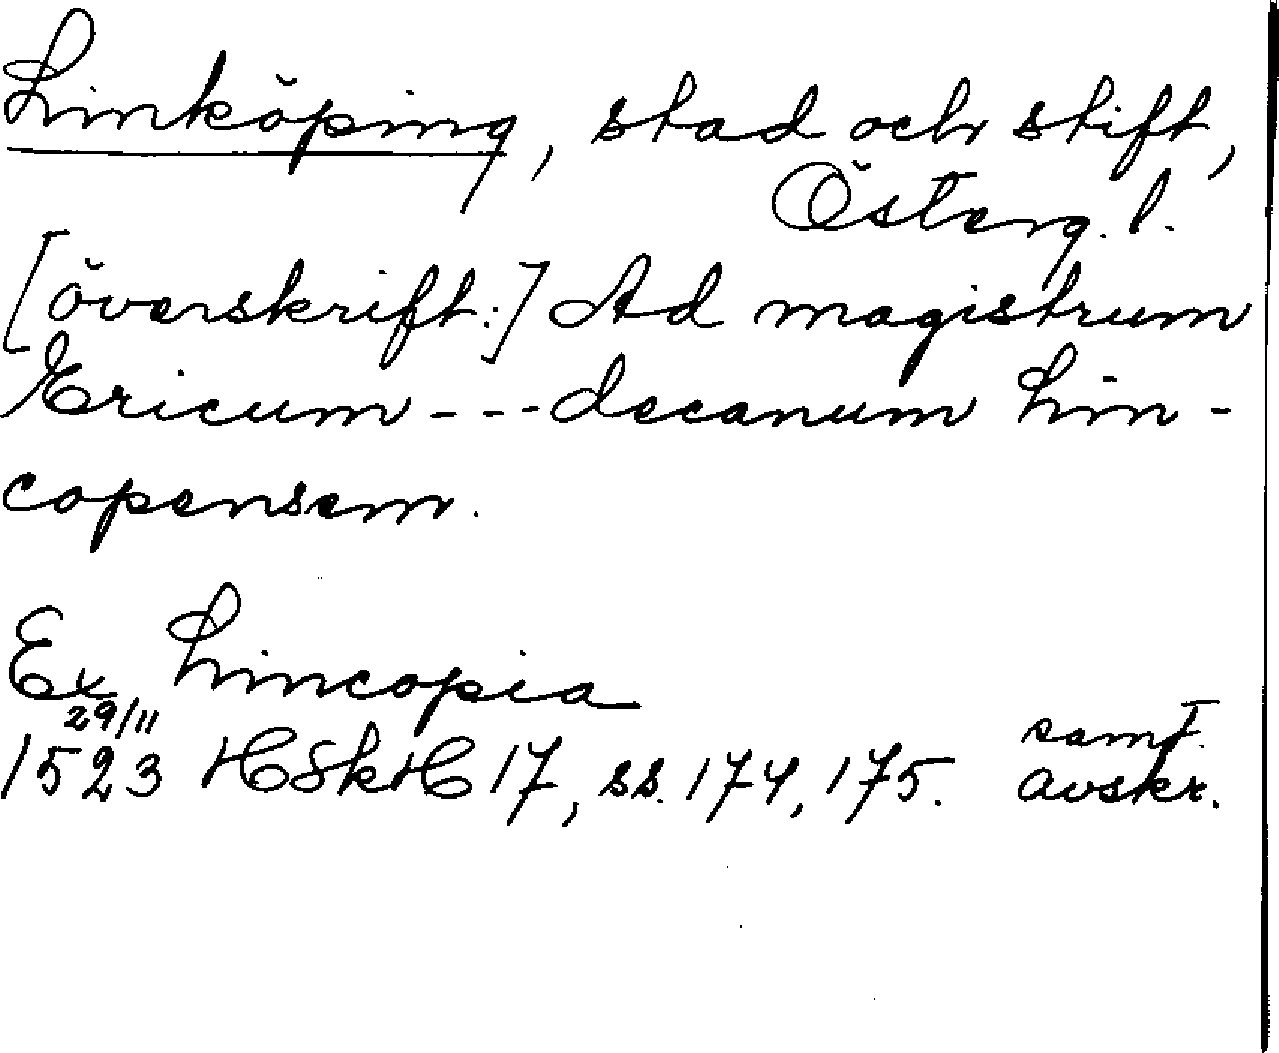 Linköping, stad och stift,
Österg. l.
[överskrift:] Ad magistrum
Ericum - - - decanum Lin-
copensem.
Ex Lincopia
29/11
1523 HSkH 17, ss. 174, 175. samt. avskr.